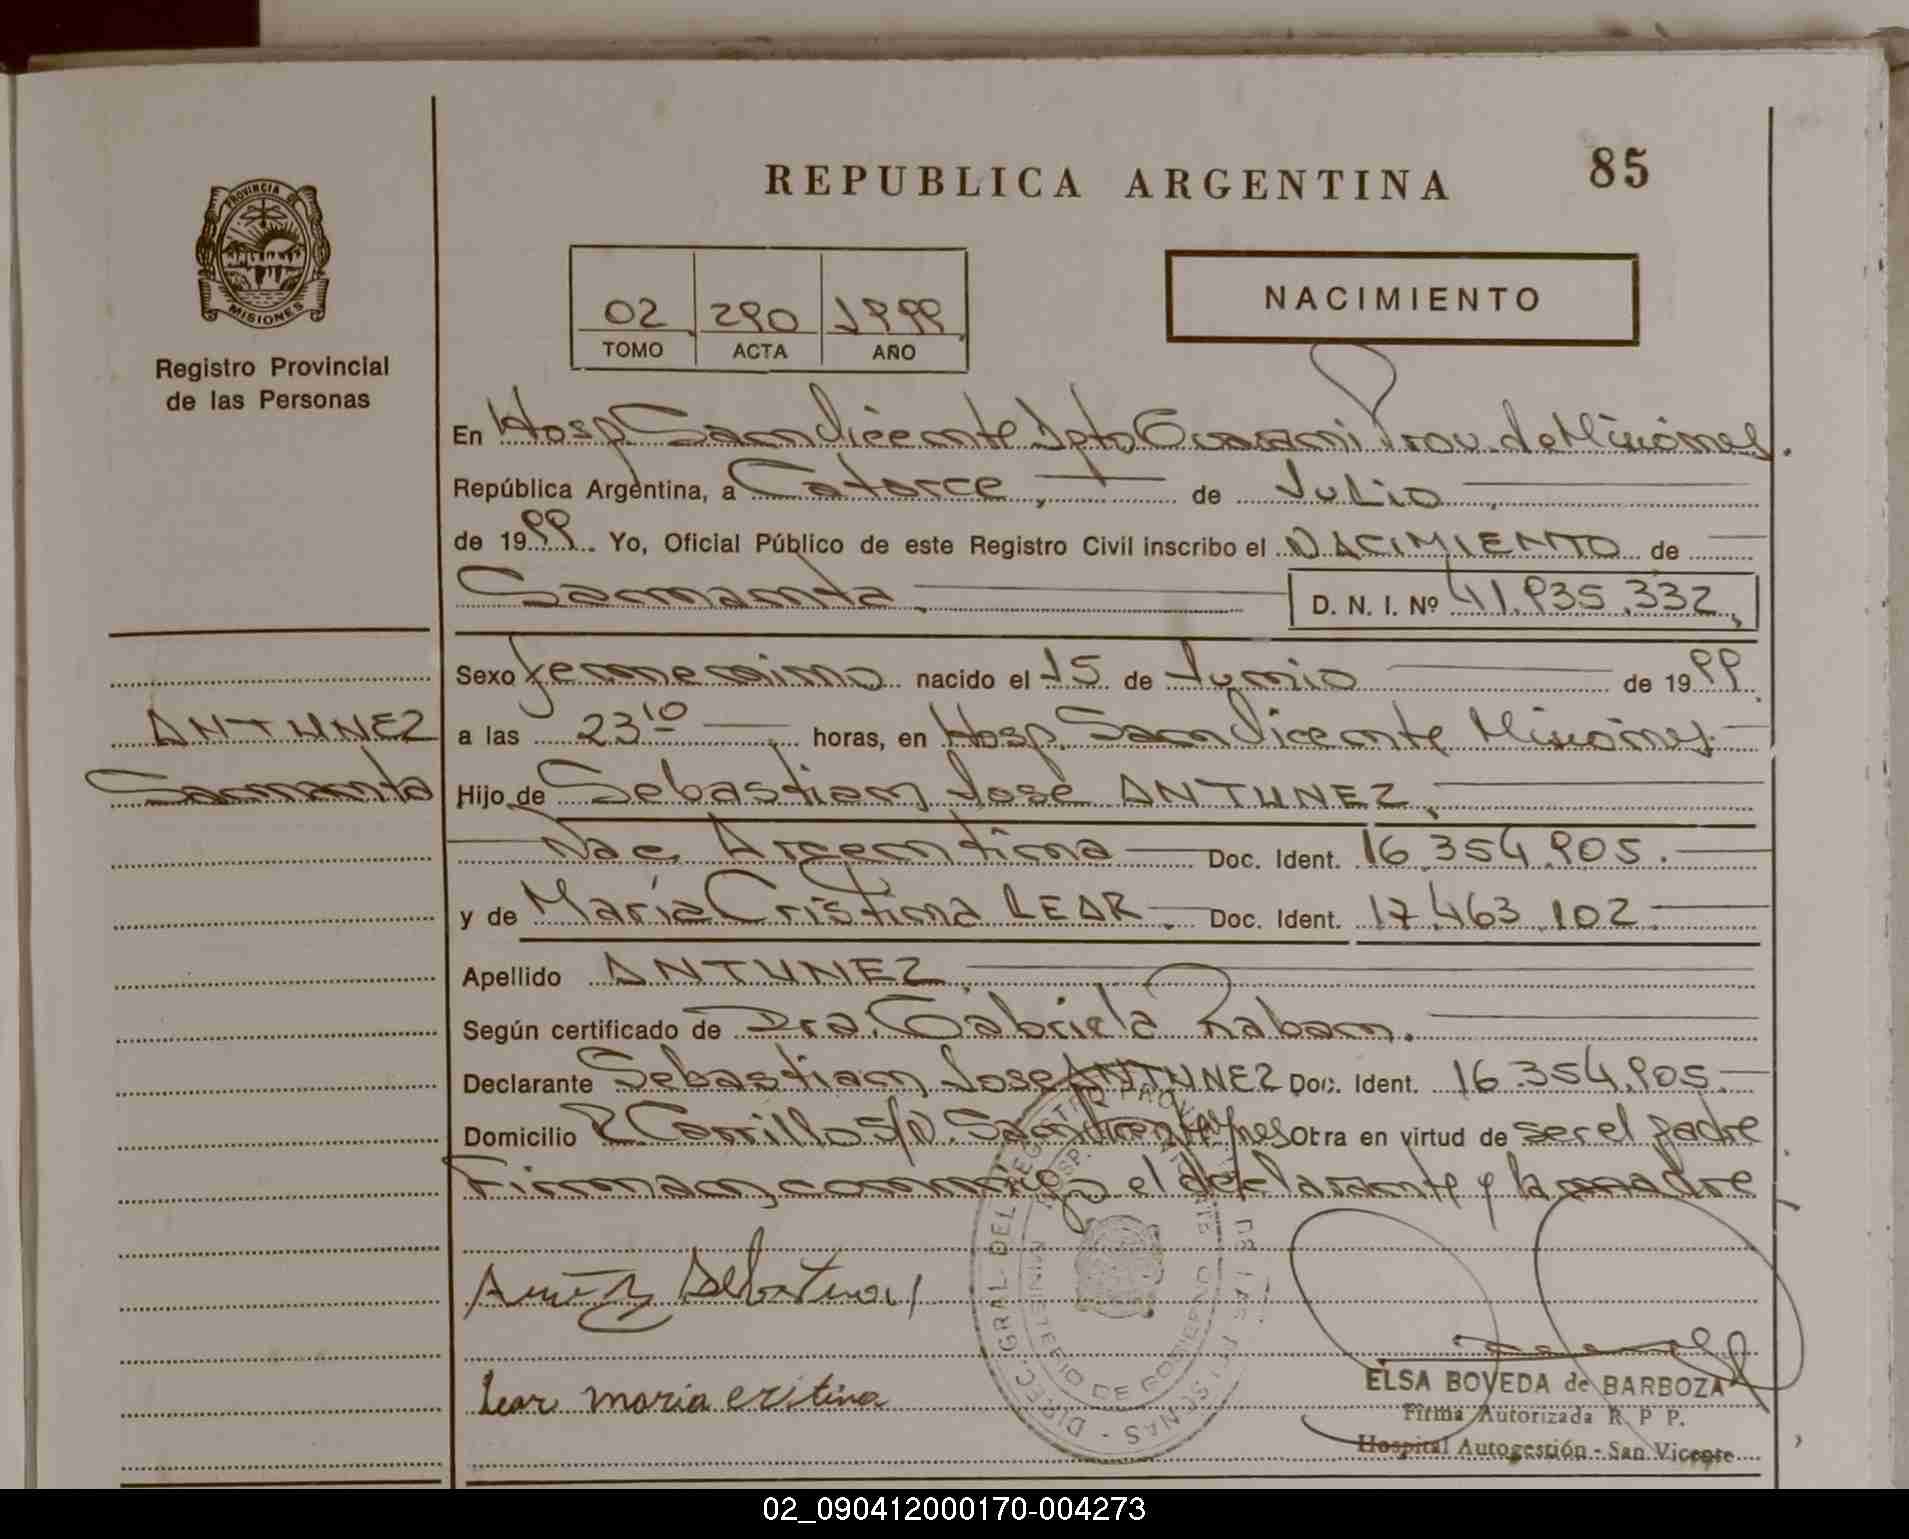 REPUBLICA ARGENTINA
85
PROVINCIA DE
MISIONES
Registro Provincial
de las Personas
02 290 1999
TOMO ACTA AÑO
NACIMIENTO
En Hosp San Vicente Dpto Guarani Prov. de Misiones.
República Argentina, a Catorce, de Julio
de 1999. Yo, Oficial Público de este Registro Civil inscribo el NACIMIENTO de
Samanta D. N. I. Nº 41.935.332,
Sexo femenino nacido el 15 de Junio de 1999
ANTUNEZ
Samanta
a las 23 10 horas, en Hosp. San Vicente Misiones.
Hijo de Sebastian José ANTUNEZ,
Nac. Argentina Doc. Ident. 16.354.905.
y de María Cristina LEAR. Doc. Ident. 17.463.102
Apellido ANTUNEZ
Según certificado de Dra. Gabriela Raban.
Declarante Sebastian Jose ANTUNEZ Doc. Ident. 16.354.905.
Domicilio R Carrillo S/N. San Vicente Mnes Otra en virtud de ser el padre
Firman conmigo el declarante y la madre
Sebastian
lear maria critina
DIREC. GRAL. DEL REGISTRO PROV. DE LAS PERSONAS
MINISTERIO DE GOBIERNO
ELSA BOVEDA de BARBOZA
Firma Autorizada R. P P.
Hospital Autogestión - San Vicente
02_090412000170-004273